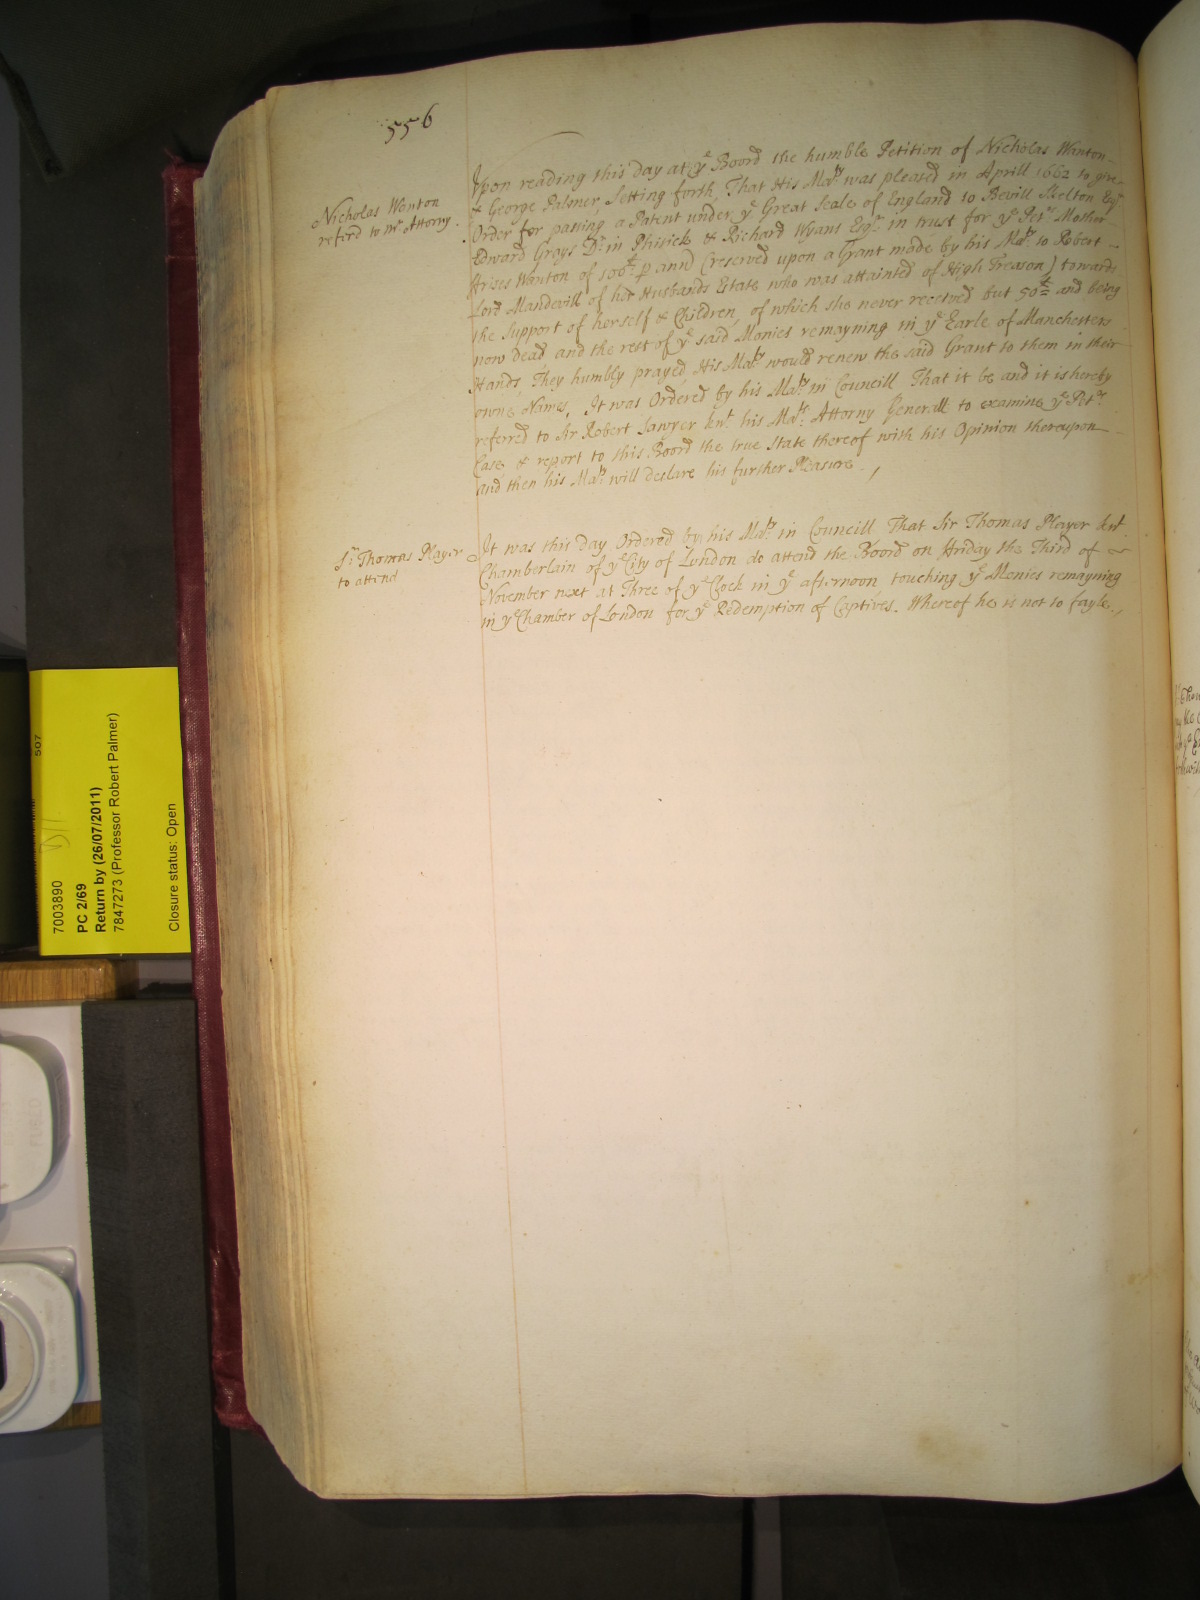 556
Nicholas Wenton
referd to Mr Attorny.
Upon reading this day at ye Boord the humble Petition of Nicholas Wanton
& George Palmer, Setting forth, That His Maty was pleased in Aprill 1662 to give
Order for passing a Patent under ye Great Seale of England to Bevill Skelton Esqr
Edward Grays Dr in Phisick & Richard Wyans Esqr in trust for ye Petrs Mother
Wanton of 100li p ann (reserved upon a Grant made by his Maty to Robert
Lord Mandevill of her Husbands Estate who was attainted of High Treason) towards
the Support of herself & Children, of which she never received but 50li and being
now dead and the rest of ye said Monies remayning in ye Earle of Manchesters
Hands, They humbly prayed His Maty would renew the said Grant to them in their
owne Names, It was Ordered by his Maty in Councill That it be and it is hereby
referred to Sir Robert Sawyer knt his Mats Attorny Generall to examine ye Petrs
Case & report to this Boord the true State thereof with his Opinion thereupon
and then his Maty will declare his further Pleasure.
Sr Thomas Player
to attend
It was this day Ordered by his Maty in Councill That Sir Thomas Player knt
Chamberlain of ye City of London do attend the Boord on Friday the Third of
November next at Three of ye Clock in ye afternoon touching ye Monies remayning
in ye Chamber of London for ye Redemption of Captives. Whereof he is not to fayle.
507
7003890
PC 2/69
Return by (26/07/2011)
7847273 (Professor Robert Palmer)
Closure status: Open